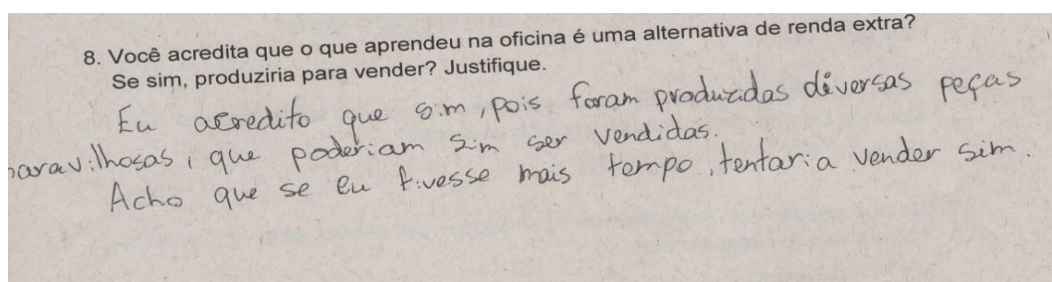 8. Você acredita que o que aprendeu na oficina é uma alternativa de renda extra?
Se sim, produziria para vender? Justifique.
Eu acredito que sim, pois foram produzidas diversas peças
maravilhosas, que poderiam sim ser vendidas.
Acho que se eu tivesse mais tempo, tentaria vender sim.